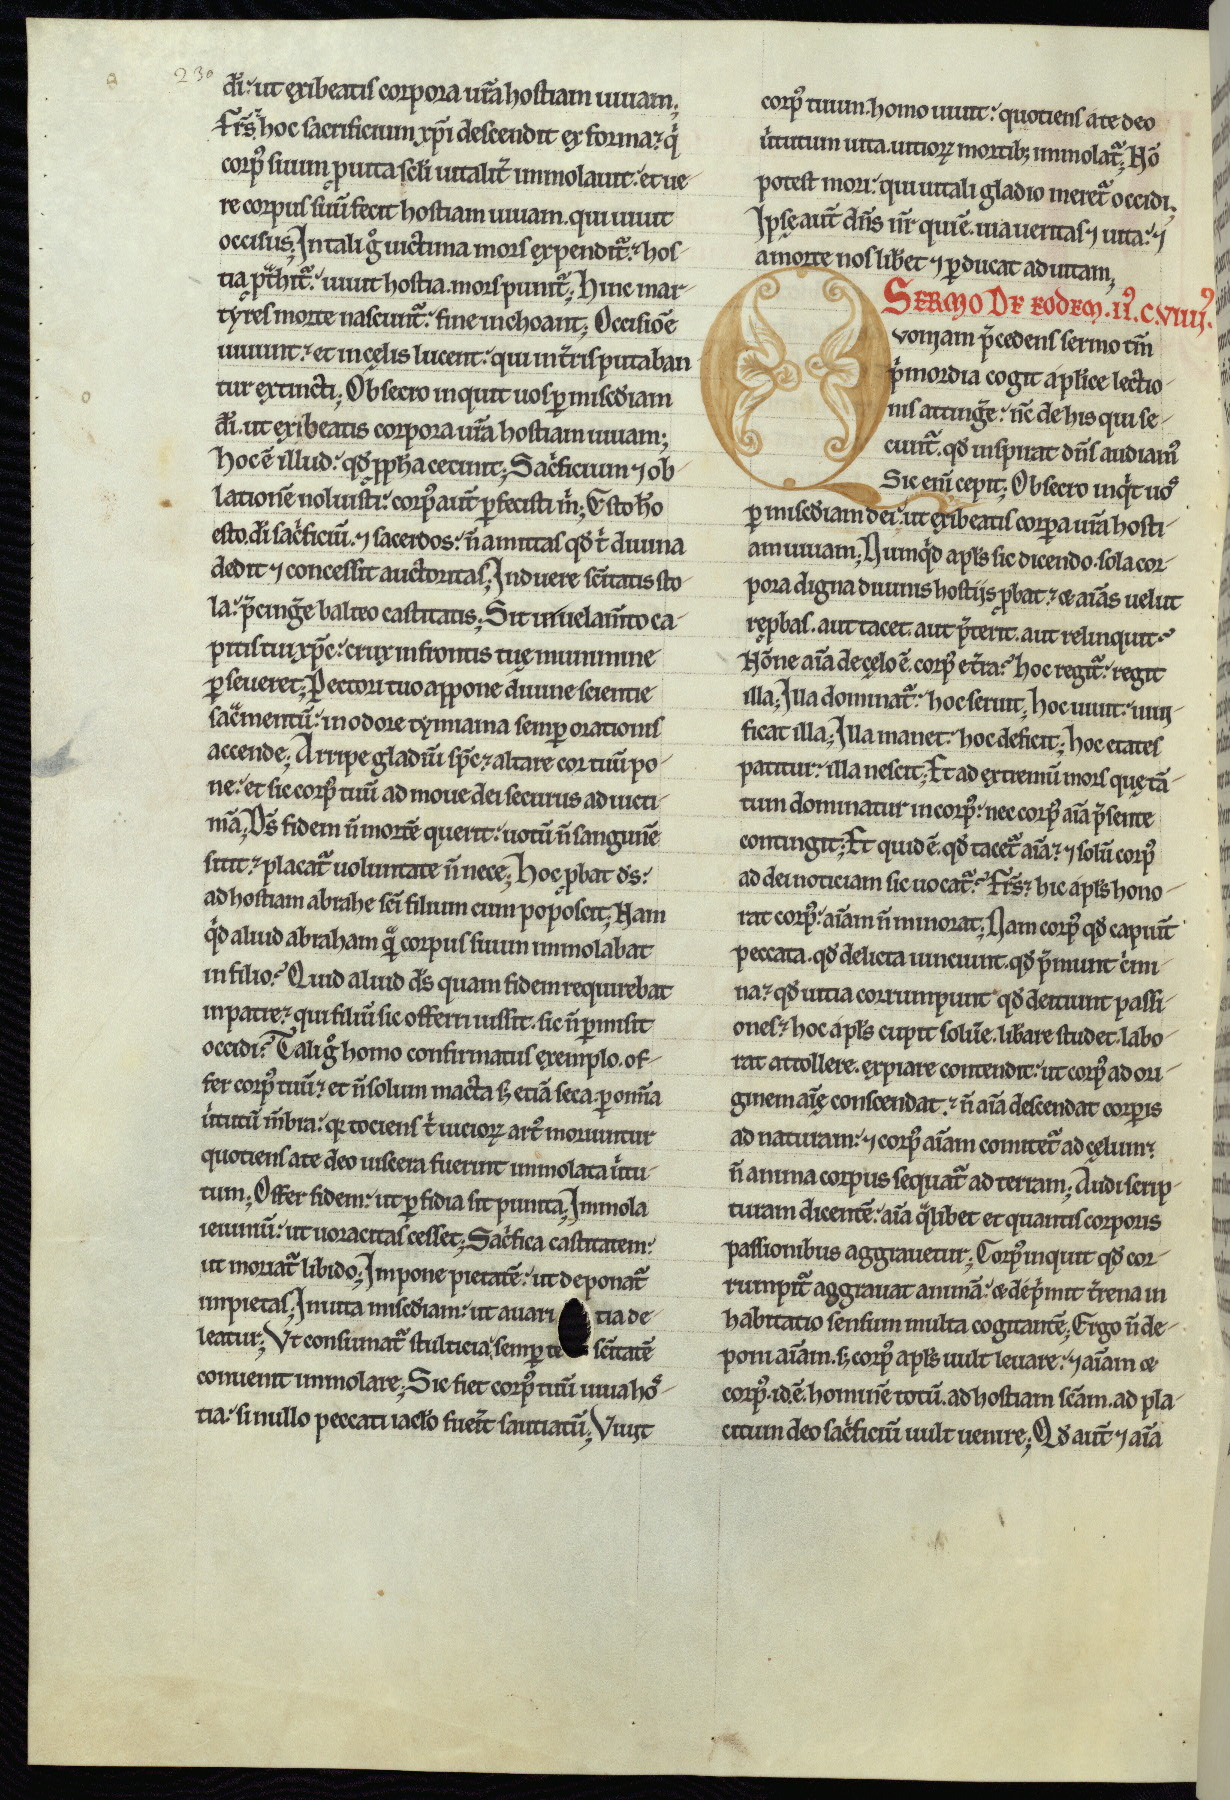 230
di. ut exibeatis corpora ura hostiam uiuam;
Frs̄ hoc sacrificium xpi descendit ex forma. q̇
corpꝰ suum p uita scli uitalit̄ immolauit. et ue-
re corpus suū fecit hostiam uiuam. qui uiuit
occisus; In tali gͦ uictima mors expendit᷑. hos-
tia pͭhit᷑. uiuit hostia. mors punit᷑; Hinc mar-
tyres morte nascunt᷑. fine inchoant; Occisiōe
uiuunt. et in cęlis lucent. qui in t̄ris putaban
tur extincti; Obsecro inquit uos ꝑ mis̄cdiam
di. ut exibeatis corpora ura hostiam uiuam;
hoc ē illud. qd̄ ppha cecinit; Sac̄ficium ⁊ ob-
lationē noluisti. corpꝰ aut̄ ꝑfecisti m̄; Esto ho
esto. di sac̄ficiū. ⁊ sacerdos. n̄ amittas qd̄ t̄ diuina
dedit ⁊ concessit auctoritas; Induere sc̄itatis sto-
la. p̄cinge balteo castitatis; Sit in uelam̄to ca-
pitis tui xp̄c. crux in frontis tuę munimine
ꝑseueret; Pectori tuo appone diuine scientie
sac̄mentū. in odore tymiama semꝑ orationis
accende; Arripe gladiū sp̄c. altare cor tuū po-
ne. et sic corpꝰ tuū ad moue dei securus ad uicti-
mā; Ds̄ fidem n̄ mortē querit. uotū n̄ sanguinē
sitit. placat᷑ uoluntate n̄ nece; Hoc ꝓbat ds̄.
ad hostiam abrahe sc̄i filium cum poposcit; Nam
qd̄ aliud abraham q̄ corpus suum immolabat
in filio? Quid aliud ds̄ quam fidem requirebat
in patre. qui filiū sic offerri iussit. sic n̄ ꝑmisit
occidi? Tali gͦ homo confirmatus exemplo. of-
fer corpꝰ tuū. et n̄ solum macta sꝫ etiā seca. ꝑ omīa
u̇tutū m̄bra. qr tociens t̄ uicioꝝ artꝰ moriuntur
quotiens a te deo uiscera fuerint immolata u̇tu-
tum; Offer fidem. ut ꝑfidia sit punita; Immola
ieiuniū. ut uoracitas cesset; Sac̄fica castitatem.
ut moriat᷑ libido; Impone pietatē. ut deponat᷑
impietas; Inuita mis̄cdiam. ut auari tia de-
leatur; Vt consumat᷑ stulticia, semꝑ te sc̄itatē
conuenit immolare; Sic fiet corpꝰ tuū uiua hos-
tia. si nullo peccati iaclo fuerit sautiatū; Viuit
corpꝰ tuum. homo uiuit. quotiens a te deo
u̇tutum uita. uitioꝝ mortibꝫ immolat᷑; Nō
potest mori. qui uitali gladio meret᷑ occidi;
Ipsę aut̄ dn̄s nr̄ qui ē. uia ueritas ⁊ uita. ⁊
a morte nos libet ⁊ ꝑducat ad uitam;
SERMO DE EODEM. IIꝰ. C. VIIIIꝰ.
Quoniam p̄cedens sermo tm̄
p̄mordia cogit aplice lectio-
nis attinge. nc̄ de his qui se-
cunt᷑. qd̄ inspirat dn̄s audiamꝰ
Sic eni cepit; Obsecro inqt uos
ꝑ mis̄cdiam dei. ut exibeatis corpora uram hosti-
am uiuam; Numqd apls̄ sic dicendo. sola cor-
pora digna diuinis hostijs ꝓbat. & aīas uelut
reꝓbas. aut tacet. aut p̄terit. aut relinquit?
Nōne aīa de cęlo ē. corpꝰ et̄ra? hoc regit᷑. regit
illa; Illa dominat᷑. hoc seruit; hoc uiuit. uiui-
ficat illa; Illa manet. hoc deficit; hoc etates
patitur. illa nescit; Et ad extremū mors quę tā-
tum dominatur in corpꝰ. nec corpꝰ aīa p̄sente
contingit; Et quid ē. qd̄ tacet᷑ aīa. ⁊ solū corpꝰ
ad dei noticiam sic uocat᷑? Frs̄. hic apls̄ hono-
rat corpꝰ. aīam n̄ minorat; Nam corpꝰ qd̄ capiunt
peccata. qd̄ delicta uinciunt. qd̄ p̄munt c̄imi-
na. qd̄ uitia corrumpunt qd̄ deiciunt passi-
ones. hoc apls̄ cupit solue. libare studet. labo-
rat attollere. expiare contendit. ut corpꝰ ad ori-
ginem aīę conscendat. n̄ aīa descendat corporis
ad naturam. ⁊ corpꝰ aīam comitet᷑ ad cęlum.
n̄ anima corpus sequat᷑ ad terram; Audi scrip-
turam dicentē. aīa q̄libet et quantis corporis
passionibus aggrauetur; Corpꝰ inquit qd̄ cor-
rumpit᷑ aggrauat animā. & dep̄mit t̄rena in
habitatio sensum multa cogitantē; Ergo n̄ de-
poni aīam. sꝫ corpꝰ apls̄ uult leuare. ⁊ aīam &
corpꝰ. id ē. hominē totū. ad hostiam sc̄am. ad pla-
citum deo sac̄ficiū uult uenire; Qd̄ aut̄ ⁊ aīa